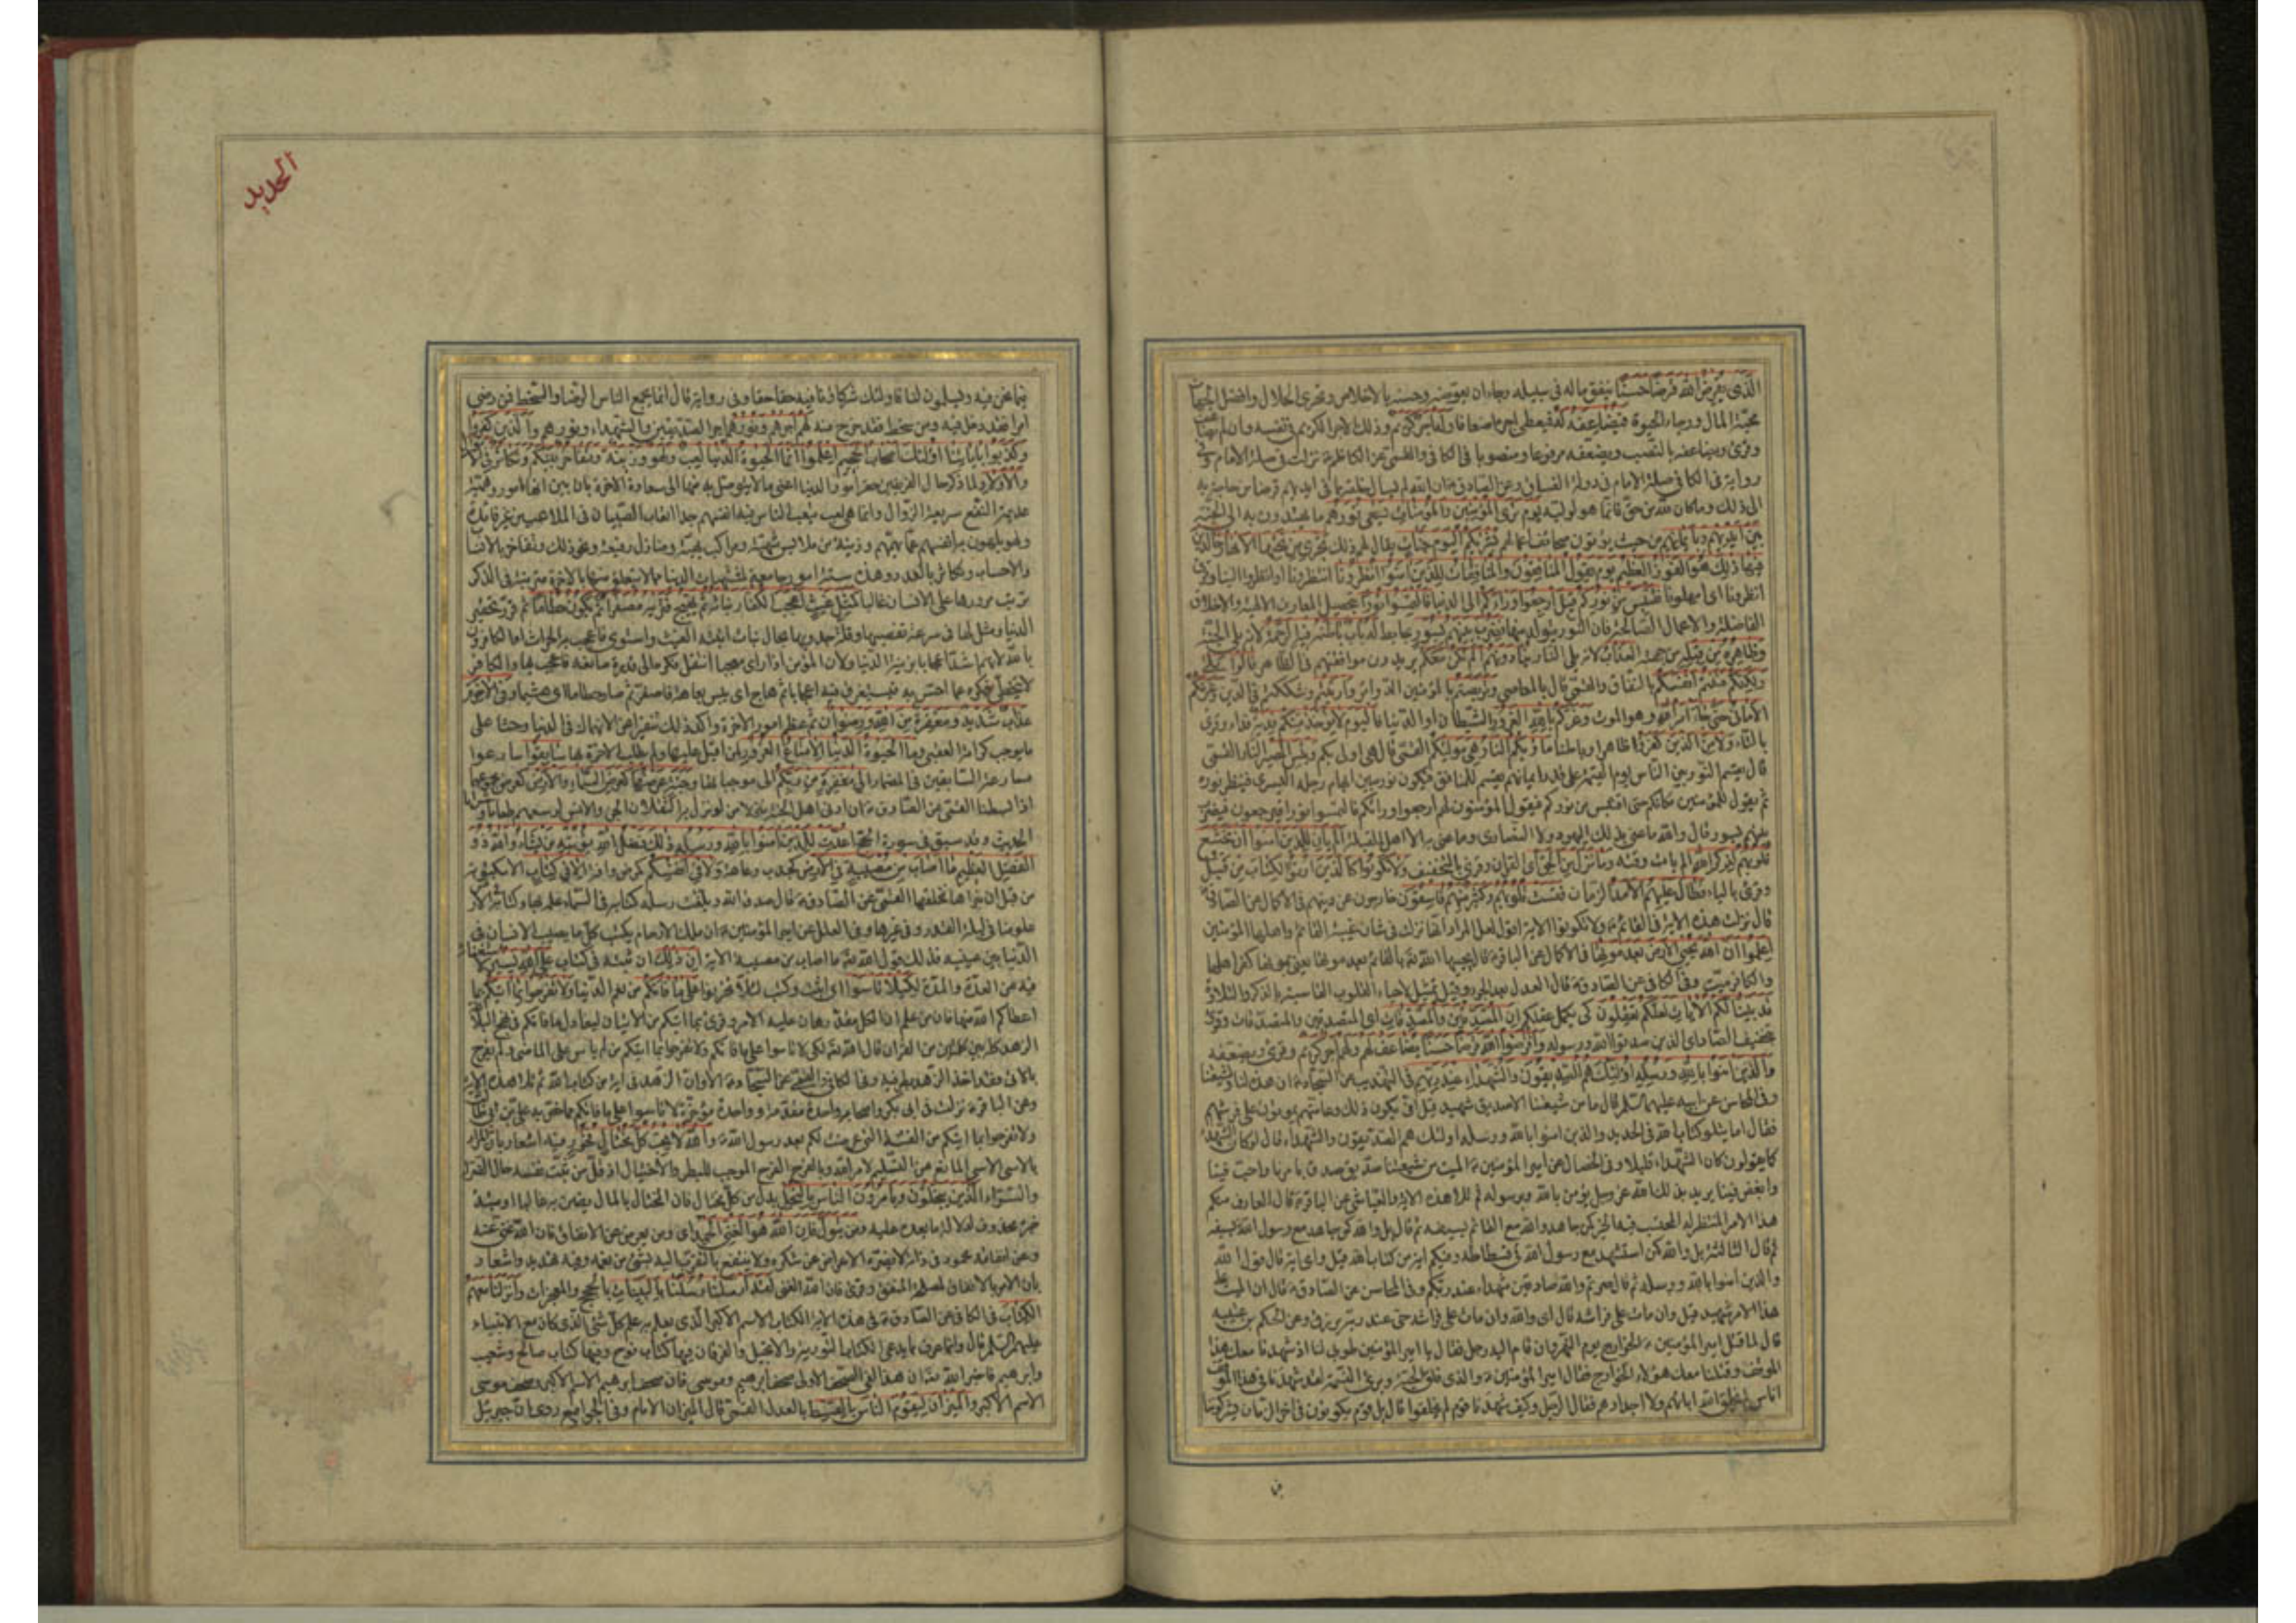 الذى يقرض الله قرضا حسنا ينفق ماله فى سبيله رجاء ان يعوضه وحسنه بالاخلاص وتحرى الحلال وافضل الجهات
محبة المال ورجاء الحيوة فيضاعفه له فيعطى اجره اضعافا وله اجر كريم وذلك الاجر الكريم فى نفسه وان لم يضاعف
وقرئ فيضاعفه بالنصب ويضعفه مرفوعا ومنصوبا فى الكافى والقمى عن الكاظم نزلت فى صلة الامام وفى
رواية فى الكافى صلة الامام فى دولة الفساق وعن الصادق ان الله لم يسأل خلقه مما فى ايديهم قرضا من حاجة به
الى ذلك وما كان لله من حق فانما هو لوليه يوم ترى المؤمنين والمؤمنات يسعى نورهم ما يهتدون به الى الجنة
بين ايديهم وبايمانهم من حيث يؤتون صحائف اعمالهم بشريكم اليوم جنات يقال لهم ذلك تجرى من تحتها الانهار خالدين
فيها ذلك هو الفوز العظيم يوم يقول المنافقون والمنافقات للذين امنوا انظرونا انتظرونا او انظروا الينا وقرئ
انظرونا اى امهلونا نقتبس من نوركم قيل ارجعوا وراءكم الى الدنيا فالتمسوا نورا بتحصيل المعارف الالهية والاخلاق
الفاضلة والاعمال الصالحة فان النور يتولد منها فضرب بينهم بسور بحايط له باب باطنه فيه الرحمة لانه يلى الجنة
وظاهره من قبله من جهته العذاب لانه يلى النار ينادونهم الم نكن معكم يريدون موافقتهم فى الظاهر قالوا بلى
ولكنكم فتنتم انفسكم بالنفاق والقمى قال بالمعاصى وتربصتم بالمؤمنين الدوائر وارتبتم وشككتم فى الدين وغرتكم
الامانى حتى جاء امر الله وهو الموت وغركم بالله الغرور الشيطان او الدنيا فاليوم لا يؤخذ منكم فدية فداء وقرئ
بالتاء ولا من الذين كفروا ظاهرا وباطنا مأويكم النار هى موليكم القمى قال هى اولى بكم وبئس المصير النار القمى
قال يقسم النور بين الناس يوم القيمة على قدر ايمانهم يقسم للمنافق فيكون نوره بين ابهام رجله اليسرى فينظر نوره
ثم يقول للمؤمنين مكانكم حتى اقتبس من نوركم فيقول المؤمنون لهم ارجعوا وراءكم فالتمسوا نورا فيرجعون فيضرب
بينهم بسور قال والله ما عنى بذلك اليهود ولا النصارى وما عنى به الا اهل القبلة الم يأن للذين امنوا ان تخشع
قلوبهم لذكر الله الم يات وقته وما نزل من الحق اى القران وقرئ بالتخفيف ولا يكونوا كالذين اوتوا الكتاب من قبل
وقرئ بالتاء فطال عليهم الامد الزمان فقست قلوبهم وكثير منهم فاسقون خارجون عن دينهم فى الاكمال عن الصادق
قال نزلت هذه الاية فى القائم ولا تكونوا الاية اقول لعل المراد انها نزلت فى شان غيبة القائم واهلها المؤمنين
اعلموا ان الله يحيى الارض بعد موتها فى الاكمال عن الباقر قال يحييها الله بالقائم بعد موتها يعنى بموتها كفر اهلها
والكافر ميت وفى الكافى عن الصادق قال العدل بعد الجور وقيل تمثيل لاحياء القلوب القاسية بالذكر والتلاوة
قد بينا لكم الايات لعلكم تعقلون كى يكمل عقلكم ان المصدقين والمصدقات اى المتصدقين والمتصدقات وقرئ
بتخفيف الصاد اى الذين صدقوا الله ورسوله واقرضوا الله قرضا حسنا يضاعف لهم ولهم اجر كريم وقرئ ويضعفه
والذين امنوا بالله ورسله اولئك هم الصديقون والشهداء عند ربهم فى التهذيب عن السجاد ان هذه لنا ولشيعتنا
وفى المحاسن عن ابيه عليهما السلم قال ما من شيعتنا الا صديق شهيد قيل انى يكون ذلك وعامتهم يموتون على فرشهم
فقال اما تتلو كتاب الله فى الحديد والذين امنوا بالله ورسله اولئك هم الصديقون والشهداء قال لو كان الشهداء
كما يقولون كان الشهداء قليلا وفى الخصال عن امير المؤمنين الميت من شيعتنا صديق صدق بامرنا واحب فينا
وابغض فينا يريد بذلك الله عز وجل يؤمن بالله وبرسوله ثم تلا هذه الاية والعياشى عن الباقر قال العارف منكم
هذا الامر المنتظر له المحتسب فيه الخير كمن جاهد والله مع القائم بسيفه ثم قال بل والله كمن جاهد مع رسول الله بسيفه
ثم قال الثالثة بل والله كمن استشهد مع رسول الله فى فسطاطه وفيكم اية من كتاب الله قيل واى اية قال قول الله
والذين امنوا بالله ورسله ثم قال صرتم والله صادقين شهداء عند ربكم وفى المحاسن عن الصادق قال ان الميت على
هذا الامر شهيد قيل وان مات على فراشه قال اى والله وان مات على فراشه حى عند ربه يرزق وعن الحكم بن عتيبه
قال لما قتل امير المؤمنين الخوارج يوم النهروان قام اليه رجل فقال يا امير المؤمنين طوبى لنا اذ شهدنا معك هذا
الموقف وقتلنا معك هؤلاء الخوارج فقال امير المؤمنين والذى فلق الحبة وبرئ النسمة لقد شهدنا فى هذا الموقف
اناس لم يخلق الله اباءهم ولا اجدادهم فقال الرجل وكيف شهدنا قوم لم يخلقوا قال بل قوم يكونون فى اخر الزمان يشركوننا
الحديد
فيما نحن فيه ويسلمون لنا فاولئك شركاؤنا فيه حقا حقا وفى رواية قال انما يجمع الناس الرضا والسخط فمن رضى
امرا فقد دخل فيه ومن سخط فقد خرج منه لهم اجرهم ونورهم اجر الصديقين والشهداء ونورهم والذين كفروا
وكذبوا باياتنا اولئك اصحاب الجحيم اعلموا انما الحيوة الدنيا لعب ولهو وزينة وتفاخر بينكم وتكاثر فى الاموال
والاولاد لما ذكر حال الفريقين حقر امور الدنيا اعنى ما لا يتوصل به منها الى سعادة الاخرة بان بين انها امور وهمية
عديمة النفع سريعة الزوال وانما هى لعب يتعب الناس فيه انفسهم جدا اتعاب الصبيان فى الملاعب من غير فائدة
ولهو يلهون به انفسهم عما يهمهم وزينة من ملابس شهية ومراكب بهية ومنازل رفيعة ونحو ذلك وتفاخر بالانساب
والاحساب وتكاثر بالعدد وهذه ستة امور جامعة لمشتهيات الدنيا مما لا يتعلق منها بالاخرة مترتبة فى الذكر
ترتيب مرورها على الانسان غالبا كمثل غيث اعجب الكفار نباته ثم يهيج فتريه مصفرا ثم يكون حطاما ثم قرر تحقير
الدنيا ومثل لها فى سرعة تقضيها وقلة جدويها بحال نبات انبته الغيث واستوى فاعجب به الحراث او الكافرون
بالله لانهم اشد اعجابا بزينة الدنيا ولان المؤمن اذا راى معجبا انتقل فكره الى قدرة صانعه فاعجب بها والكافر
لا يتخطى فكره عما احس به فيستغرق فيه اعجابا ثم هاج اى يبس بعاهة فاصفر ثم صار حطاما اى هشيما وفى الاخرة
عذاب شديد ومغفرة من الله ورضوان ثم عظم امور الاخرة واكد ذلك تنفيرا عن الانهماك فى الدنيا وحثا على
ما يوجب كرامة العقبى وما الحيوة الدنيا الا متاع الغرور لمن اقبل عليها ولم يطلب الاخرة بها سابقوا سارعوا
مسارعة السابقين فى المضمار الى مغفرة من ربكم الى موجباتها وجنة عرضها كعرض السماء والارض كعرض مجموعهما
اذا بسطتا القمى عن الصادق ان ادنى اهل الجنة منزلا من لو نزل به الثقلان الجن والانس لوسعهم طعاما وشرابا
الحديث وقد سبق فى سورة الحج اعدت للذين امنوا بالله ورسله ذلك فضل الله يؤتيه من يشاء والله ذو
الفضل العظيم ما اصاب من مصيبة فى الارض كجدب وعاهة ولا فى انفسكم كمرض وافة الا فى كتاب الا مكتوبة
من قبل ان نبراها نخلقها القمى عن الصادق قال صدق الله وبلغت رسله كتابه فى السماء علمه بها وكتابه فى الارض
علومنا فى ليلة القدر وفى غيرها وفى العلل عن امير المؤمنين ان ملك الارحام يكتب كل ما يصيب الانسان فى
الدنيا بين عينيه فذلك قول الله ما اصاب من مصيبة الاية ان ذلك ان ثبته فى كتاب على الله يسير لاستغنائه
فيه عن العدة والمدة لكيلا تاسوا اى اثبت وكتب لئلا تحزنوا على ما فاتكم من نعم الدنيا ولا تفرحوا بما اتيكم بما
اعطاكم الله منها فان من علم ان الكل مقدر هان عليه الامر وقرئ بما اتيكم من الاتيان ليعادل ما فاتكم فى نهج البلاغة
الزهد كله بين كلمتين من القران قال الله لكى لا تاسوا على ما فاتكم ولا تفرحوا بما اتيكم من لم ياس على الماضى ولم يفرح
بالاتى فقد اخذ الزهد بطرفيه وفى الكافى والقمى عن السجاد الا وان الزهد فى اية من كتاب الله ثم تلا هذه الاية
وعن الباقر نزلت فى ابى بكر واصحابه واحدة مقدمة وواحدة مؤخرة لا تاسوا على ما فاتكم مما خص به على بن ابى طالب
ولا تفرحوا بما اتيكم من الفتنة التى عرضت لكم بعد رسول الله والله لا يحب كل مختال فخور فيه اشعار بان المراد
بالاسى الاسى المانع من التسليم لامر الله وبالفرح الفرح الموجب للبطر والاختيال اذ قل من يثبت نفسه حال الضراء
والسراء الذين يبخلون ويامرون الناس بالبخل بدل من كل مختال فان المختال بالمال يضن به غالبا او مبتدأ
خبره محذوف لدلالة ما بعده عليه ومن يتول فان الله هو الغنى الحميد اى ومن يعرض عن الانفاق فان الله غنى عنه
وعن انفاقه محمود فى ذاته لا يضره الاعراض عن شكره ولا ينتفع بالتقرب اليه بشئ من نعمه وفيه تهديد واشعار
بان الامر بالانفاق لمصلحة المنفق وقرئ فان الله الغنى لقد ارسلنا رسلنا بالبينات بالحجج والمعجزات وانزلنا معهم
الكتاب فى الكافى عن الصادق فى هذه الاية الكتاب الاسم الاكبر الذى يعلم به علم كل شئ الذى كان مع الانبياء
عليهم السلم قال وانما عرف مما يدعى الكتاب التورية والانجيل والفرقان فيها كتاب نوح وفيها كتاب صالح وشعيب
وابرهيم فاخبر الله ان هذا لفى الصحف الاولى صحف ابرهيم وموسى فاين صحف ابرهيم الاسم الاكبر وصحف موسى
الاسم الاكبر والميزان ليقوم الناس بالقسط بالعدل القمى قال الميزان الامام وفى الجوامع روى ان جبرئيل